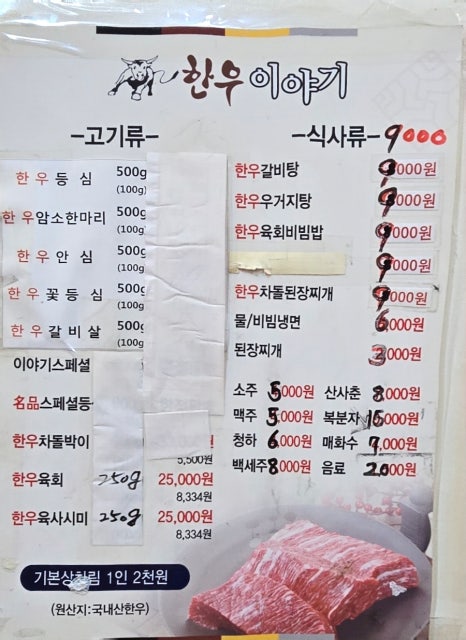 한우이야기
-고기류-
한우등심 500g
(100g)
한우암소한마리 500g
(100g)
한우안심 500g
(100g)
한우꽃등심 500g
(100g)
한우갈비살 500g
(100g)
이야기스페셜
名品스페셜등
한우차돌박이
5,500원
한우육회 250g 25,000원
8,334원
한우육사시미 250g 25,000원
8,334원
기본상차림 1인 2천원
(원산지:국내산한우)
-식사류- 9000
한우갈비탕 9000원
한우우거지탕 9000원
한우육회비빔밥 9000원
9000원
한우차돌된장찌개 9000원
물/비빔냉면 6000원
된장찌개 3000원
소주 5000원 산사춘 8000원
맥주 5000원 복분자 15000원
청하 6000원 매화수 7,000원
백세주 8000원 음료 2000원